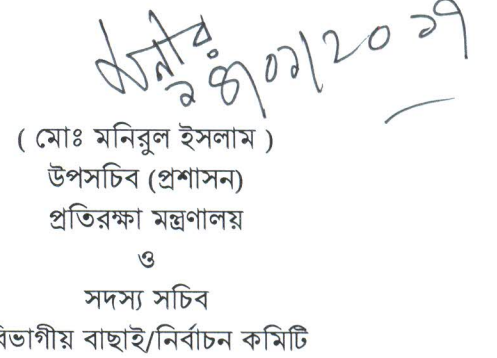 মনীর
২৪/০১/২০১৭
( মোঃ মনিরুল ইসলাম )
উপসচিব (প্রশাসন)
প্রতিরক্ষা মন্ত্রণালয়
ও
সদস্য সচিব
বিভাগীয় বাছাই/নির্বাচন কমিটি